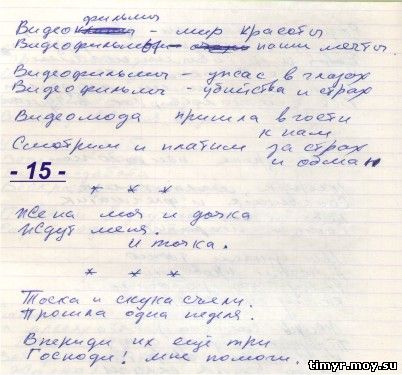 фильмы
Видео - мир красоты
Видеофильмы - наши мечты.
Видеофильмы - ужас в глазах
Видеофильмы - убийства и страх
Видеомода пришла в гости
к нам
Смотрим и платим за страх
и обман
- 15 -
* * *
Жена моя и дочка
Ждут меня.
И точка.
* * *
Тоска и скука съели.
Прошла одна неделя.
Впереди их ещё три
Господи! мне помоги.
timyr.moy.su